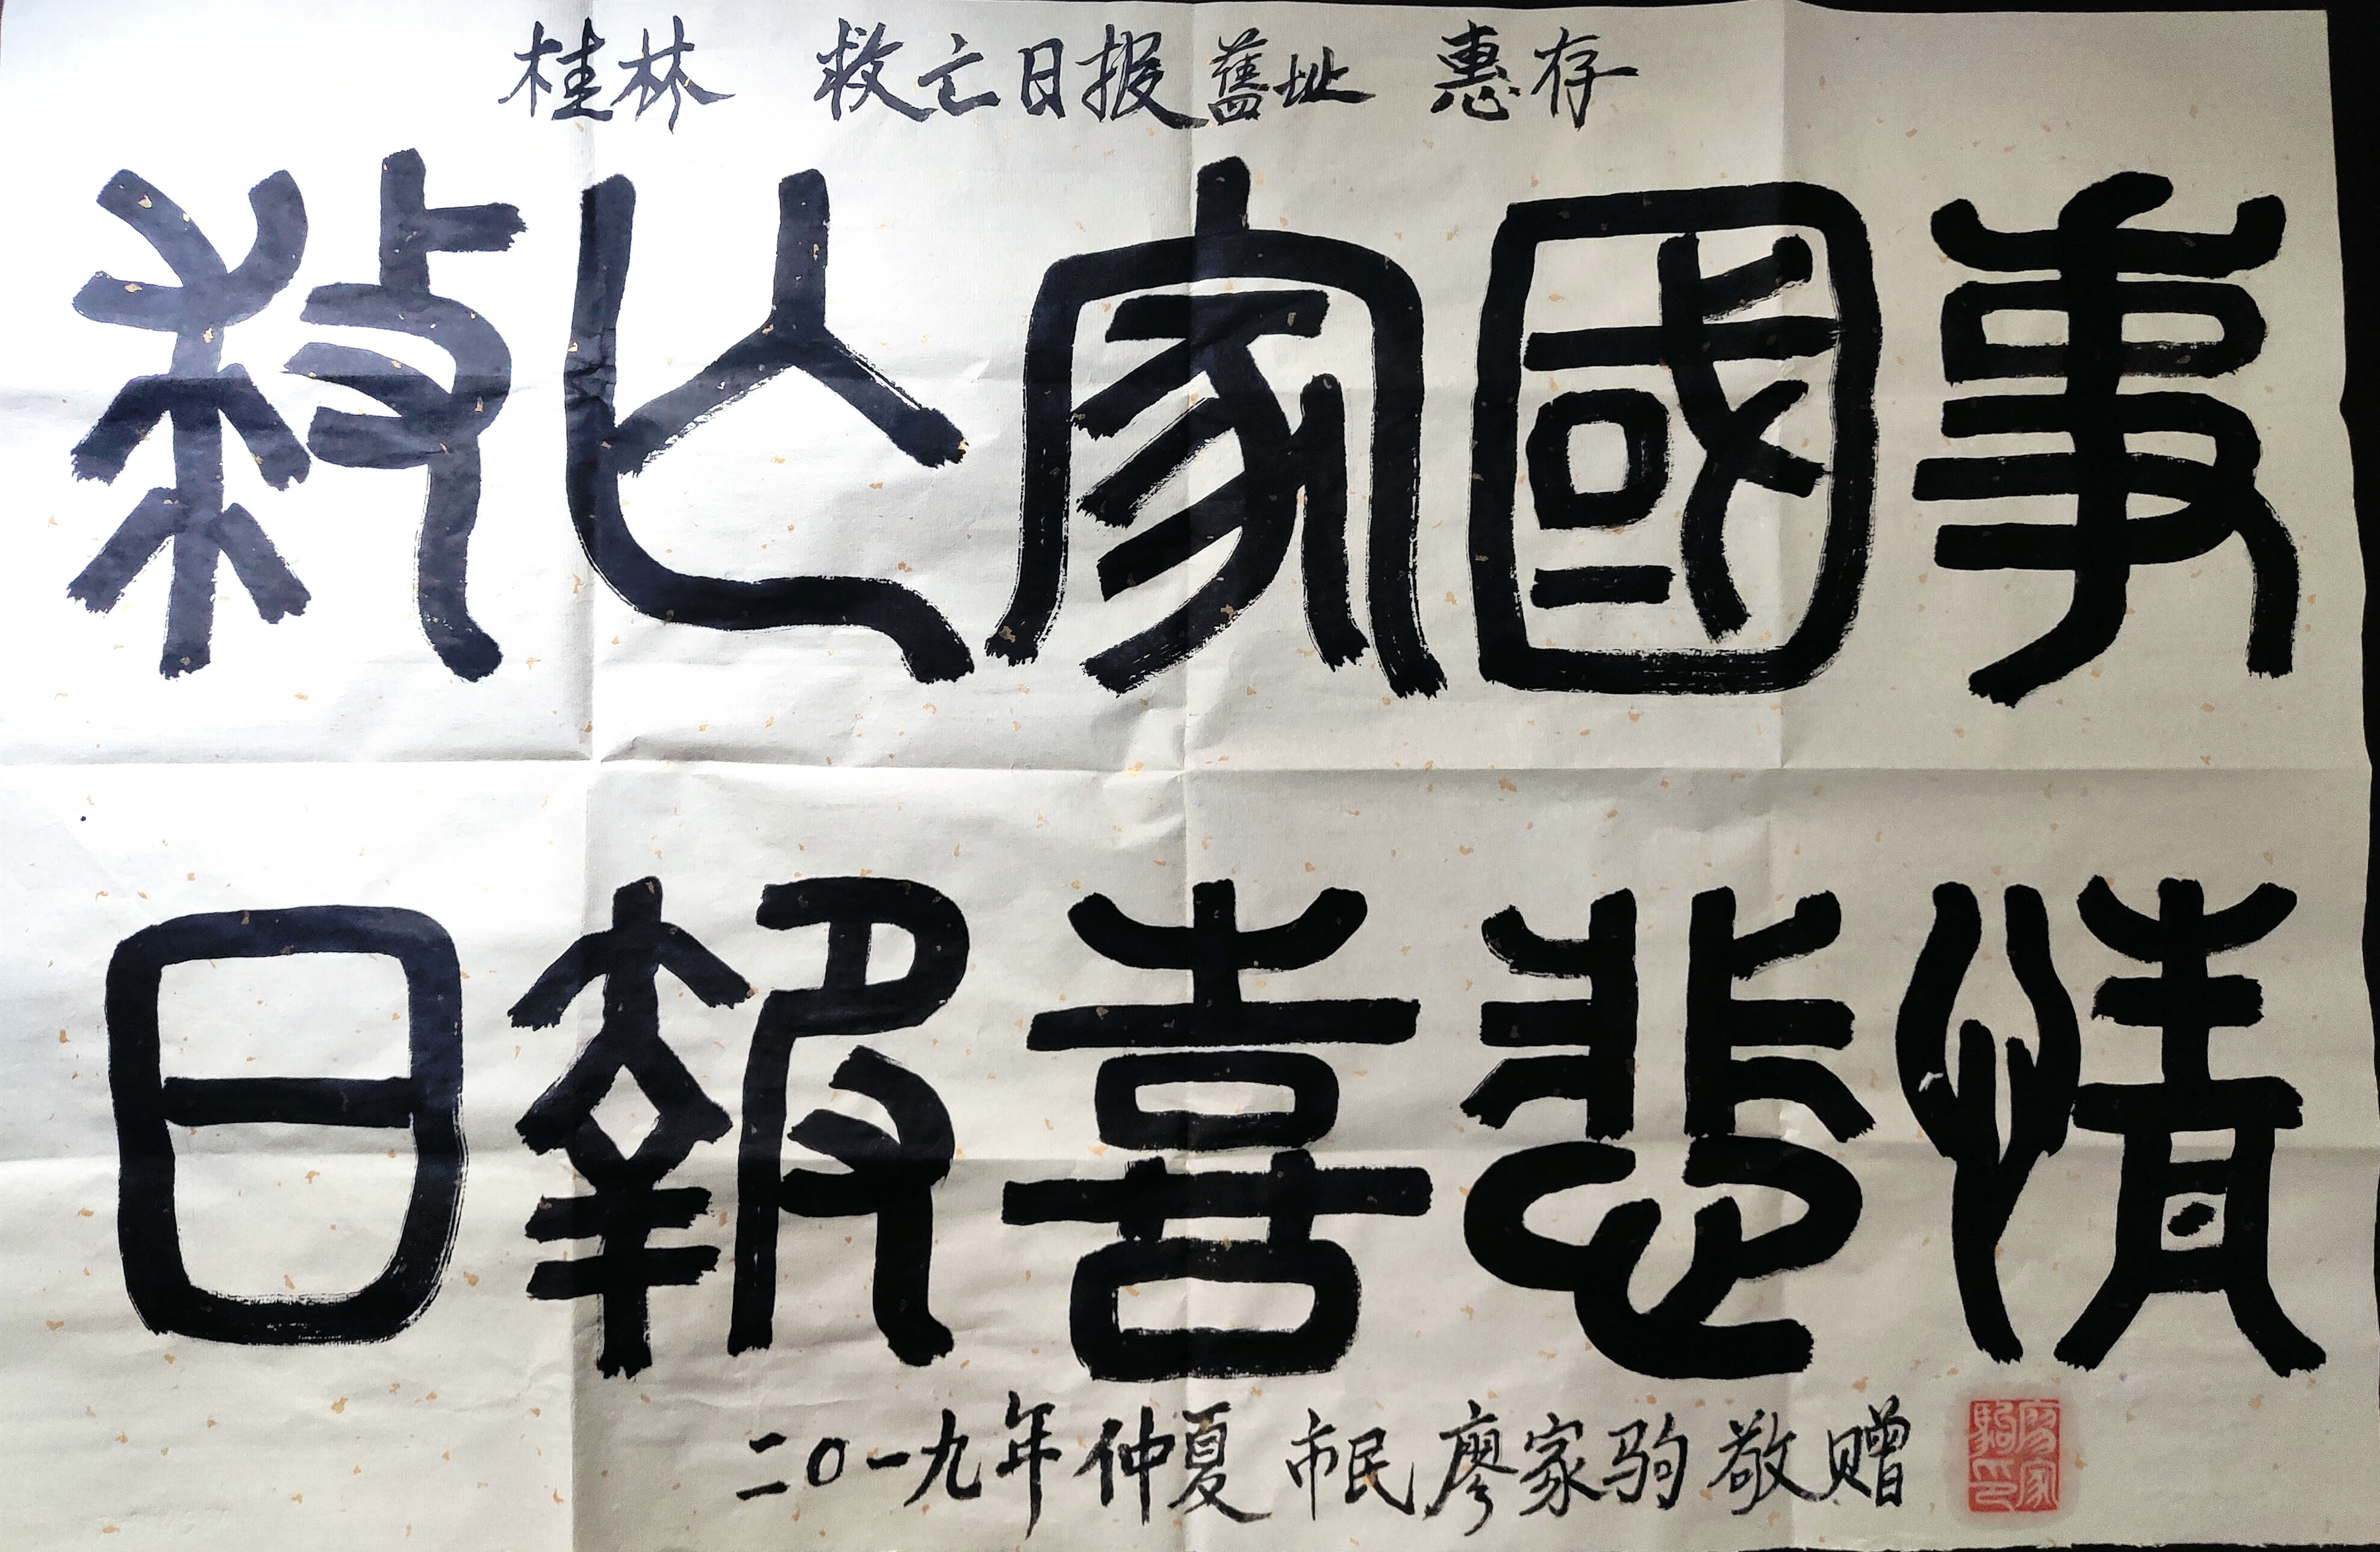 桂林 救亡日报舊址 惠存
救亡家國事
日報喜悲情
二〇一九年仲夏 市民廖家驹敬赠
廖家駒印